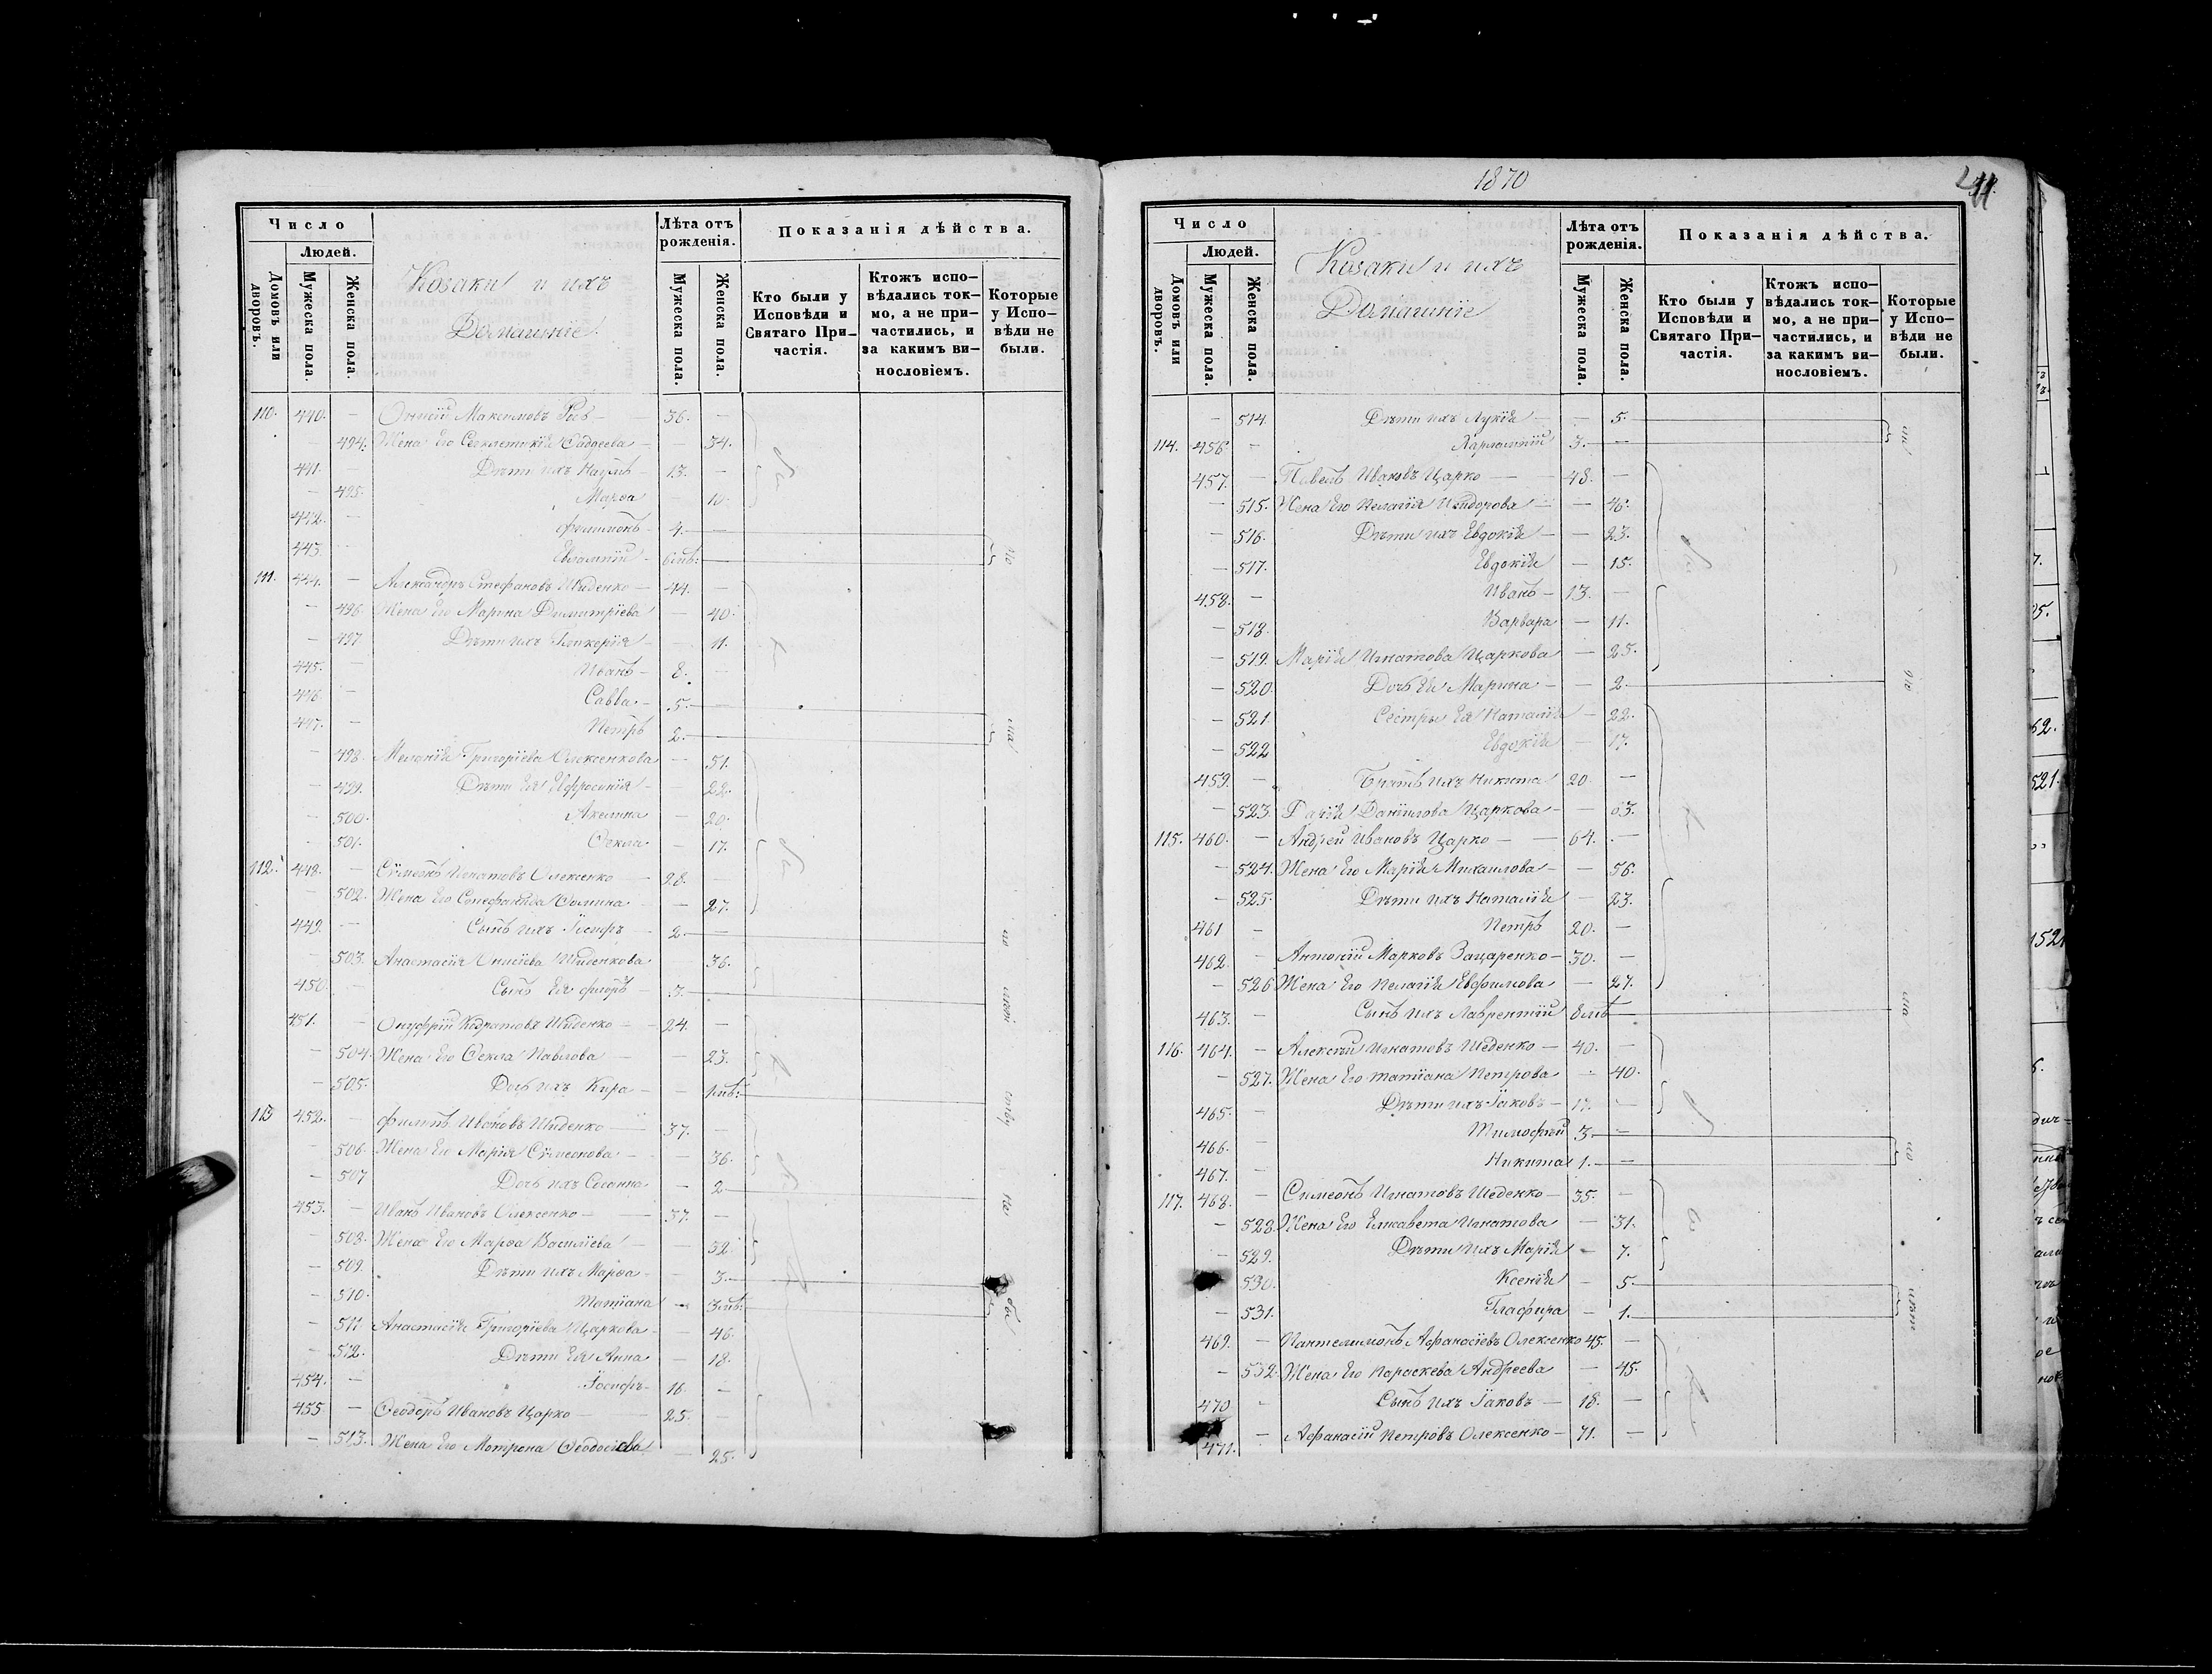 Число
Людей.
Домовъ или дворовъ.
Мужеска пола.
Женска пола.
Козаки и ихъ
Домашніе.
Лѣта отъ рожденія.
Мужеска пола.
Женска пола.
Показанія дѣйства.
Кто были у Исповѣди и Святаго Причастія.
Ктожъ исповѣдались токмо, а не причастились, и за какимъ винословіемъ.
Которые у Исповѣди не были.
110. 440. — Онисій Максимовъ — 36. —
— 494. Жена Его Синклитикія Фаддеева — — 34.
441. — Дѣти ихъ Наумъ — 13. —
— 495. Марѳа — 10.
442. — Филимонъ — 4. —
443. — Евлампій — 6 мѣ:
111. 444. — Александръ Стефановъ Шиденко — 44. —
— 496. Жена Его Марина Димитріева — 40.
— 497 Дѣти ихъ Гликерія — — 11.
445. — Иванъ — 8. —
446 — Савва — 5. —
447. — Петръ 2. —
— 498. Меланія Григоріева Олексенкова — 51.
— 499. Дѣти Ея Евфросинія — 22.
— 500. Акилина — 20.
— 501. Ѳекла — 17.
112. 448. — Сѵмеонъ Игнатовъ Олексенко — 28. —
— 502. Жена Его Стефанида Фомина — — 27.
449. — Сынъ ихъ Іосифъ — 2. —
— 503. Анастасія Онисіева Шиденкова — 36.
450. — Сынъ Ея Флоръ — 3. —
451. — Онуфрій Кодратовъ Шиденко — 24. —
— 504. Жена Его Ѳекла Павлова — — 23.
— 505. Дочь ихъ Кира — — 1 мѣ:
113 452. — Филипъ Ивановъ Шиденко — 37. —
— 506. Жена Его Марія Сѵмеонова — — 36.
— 507 Дочь ихъ Сосанна — 2.
453. — Иванъ Ивановъ Олексенко — 37. —
— 508. Жена Его Марѳа Василіева — — 32.
— 509. Дѣти ихъ Марѳа — — 3. —
— 510. Татіана — 3 мѣ:
— 511. Анастасія Григоріева Царкова — — 46.
— 512. Дѣти Ея Анна — 18.
454. — Іосифъ — 16. —
455. — Ѳеодоръ Ивановъ Царко — 25. —
— 513. Жена Его Мотрона Ѳеодосіева — 25.
1870
Число
Людей.
Домовъ или дворовъ.
Мужеска пола.
Женска пола.
Козаки и ихъ
Домашніе
Лѣта отъ рожденія.
Мужеска пола.
Женска пола.
Показанія дѣйства.
Кто были у Исповѣди и Святаго Причастія.
Ктожъ исповѣдались токмо, а не причастились, и за какимъ винословіемъ.
Которые у Исповѣди не были.
— 514. Дѣти ихъ Лукія — — 5.
114. 456. — Харлампій 3. —
457. — Павелъ Ивановъ Царко — 48. —
— 515. Жена Его Пелагія Исидорова — — 46.
— 516. Дѣти ихъ Евдокія — — 23.
— 517. Евдокія — 15.
458. — Иванъ — 13. —
— 518. Варвара — 11.
— 519. Марія Игнатова Царкова — 25.
— 520. Дочь Ея Марина — — 2.
— 521. Сестры Ея Наталія — 22.
— 522 Евдокія — 17.
459. — Братъ ихъ Никита 20. —
— 523. Даніилова Царкова — — 63.
115. 460. — Андрей Ивановъ Царко — 64. —
— 524. Жена Его Марія Михаилова — — 56.
— 525. Дѣти ихъ Наталія — 23.
461 — Петръ 20. —
462. — Антоній Марковъ Зацаренко — 30. —
— 526 Жена Его Пелагія Евфимова — 27.
463. — Сынъ ихъ Лаврентій 8 мѣ
116. 464. — Алексѣй Игнатовъ Шеденко — 40. —
— 527. Жена Его Татіана Петрова — 40.
465. — Дѣти ихъ Іаковъ — 17. —
466. — Тимофѣй 3. —
467. — Никита 1. —
117. 468. — Симеонъ Игнатовъ Шеденко — 35. —
— 528. Жена Его Елисавета Игнатова — 31.
— 529. Дѣти ихъ Марія — 7.
530. Ксенія — 5.
— 531. Глафира — 1.
469. — Пантелимонъ Афанасіевъ Олексенко 45. —
— 532. Жена Его Параскева Андреева — 45.
470 — Сынъ ихъ Іаковъ — 18. —
471. — Афанасій Петровъ Олексенко — 71. —